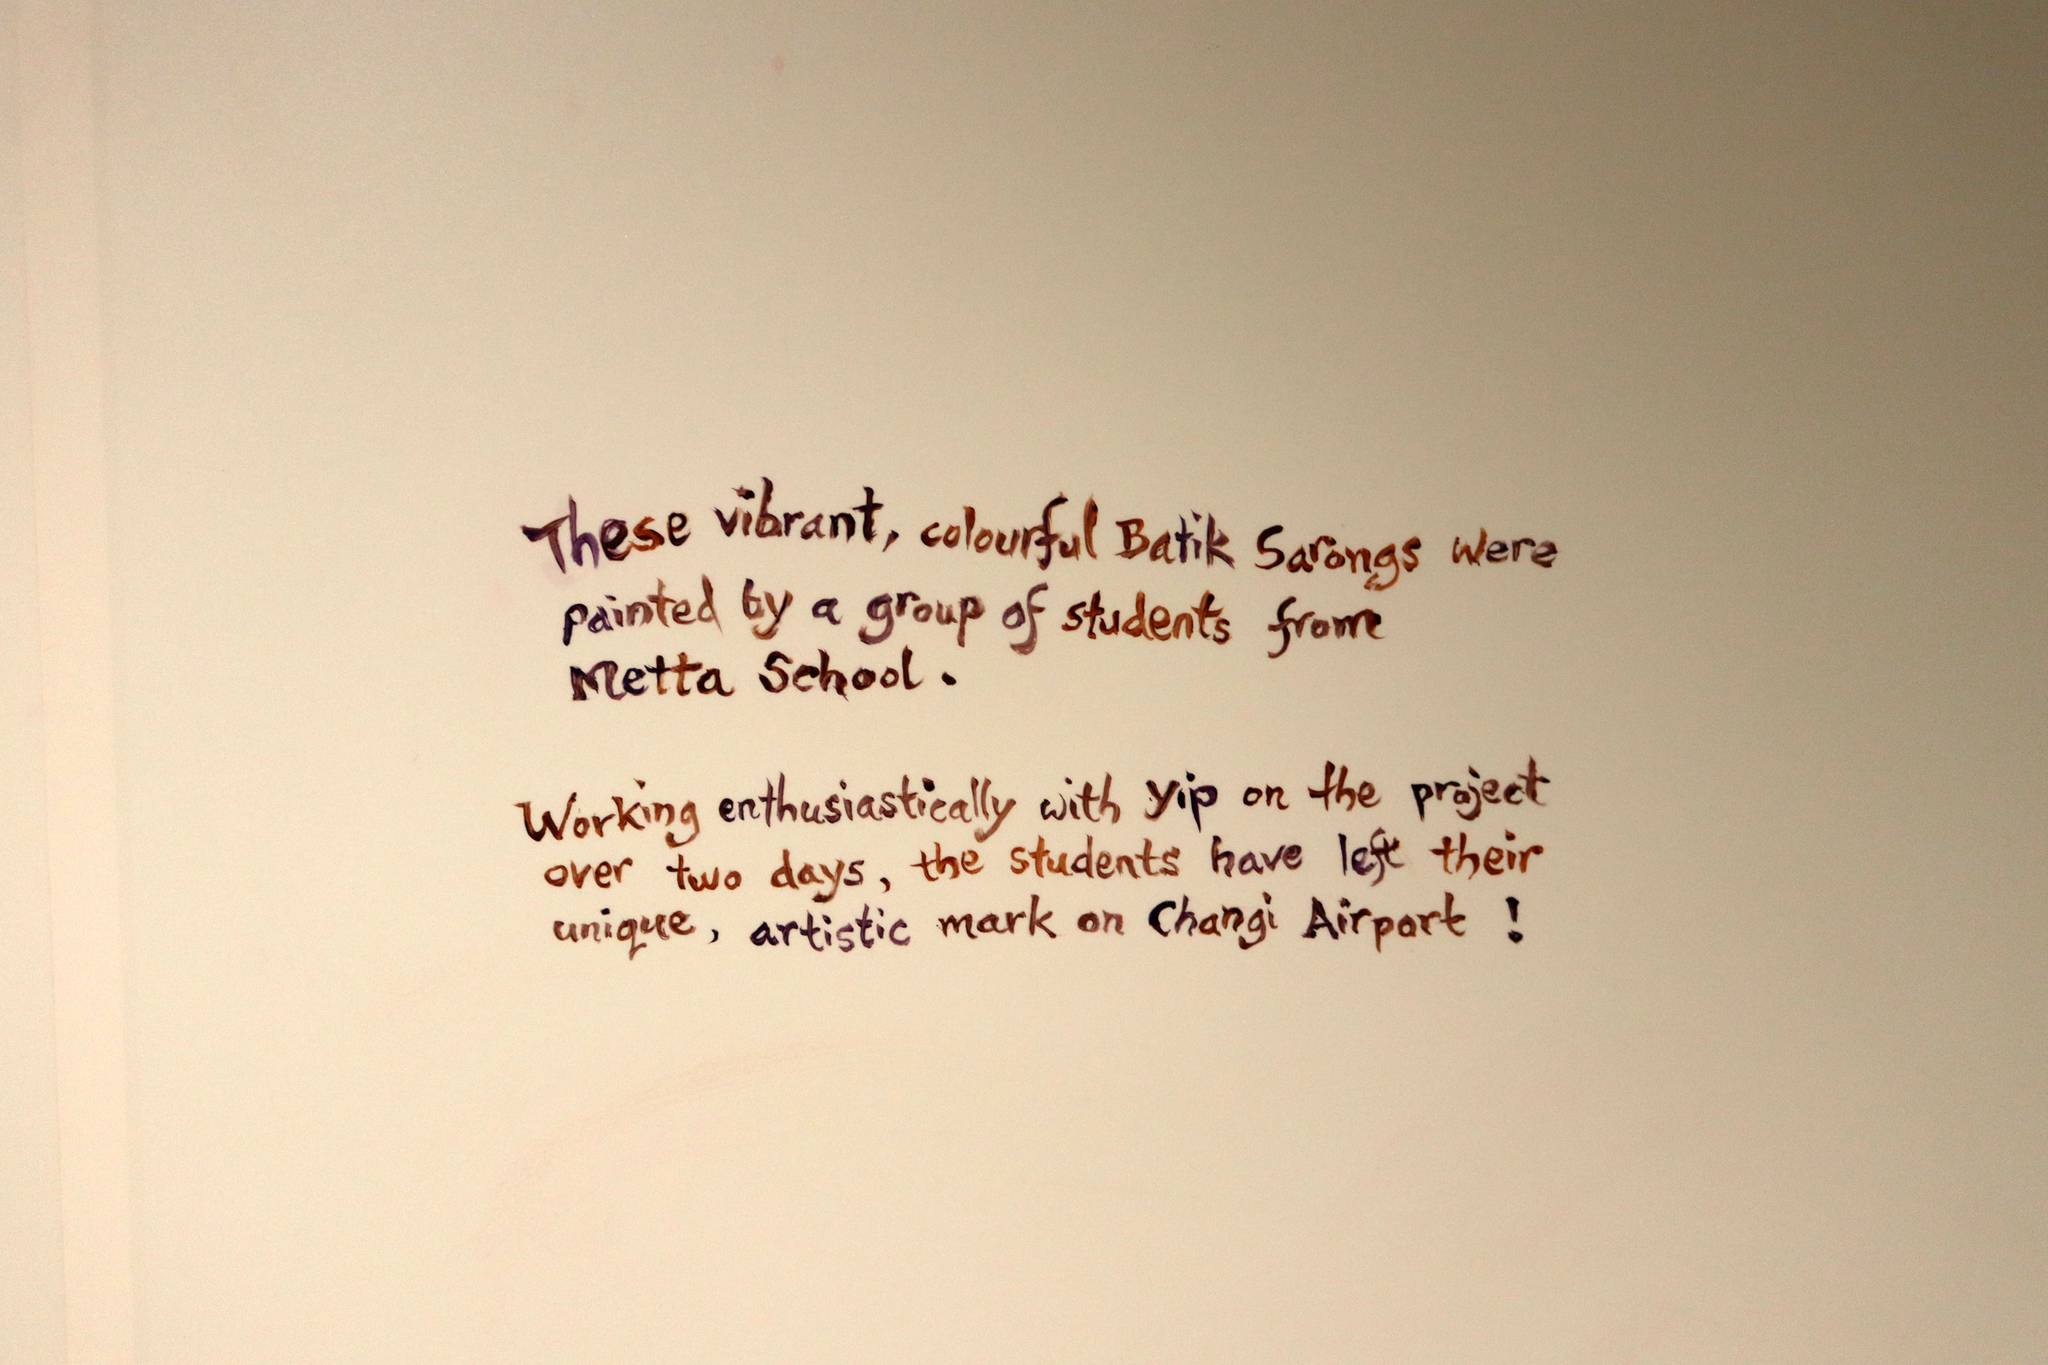 These vibrant, colourful Batik Sarongs were
painted by a group of students from
Metta School.
Working enthusiastically with Yip on the project
over two days, the students have left their
unique, artistic mark on Changi Airport !